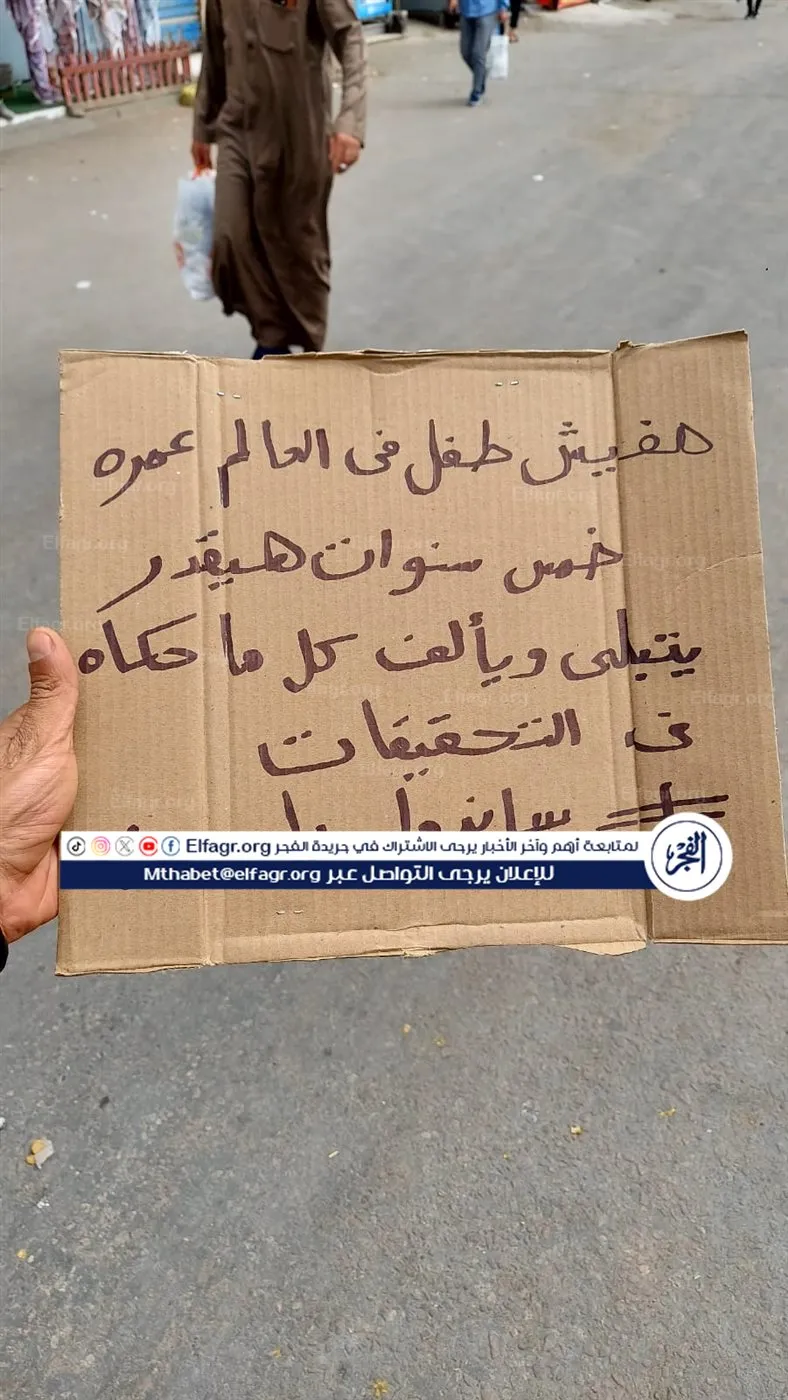 مفيش طفل فى العالم عمره
خمس سنوات هيقدر
يتبلى ويألف كل ما حكاه
فى التحقيقات
لمتابعة أهم وآخر الأخبار يرجى الاشتراك في جريدة الفجر Elfagr.org
للإعلان يرجى التواصل عبر Mthabet@elfagr.org
الفجر